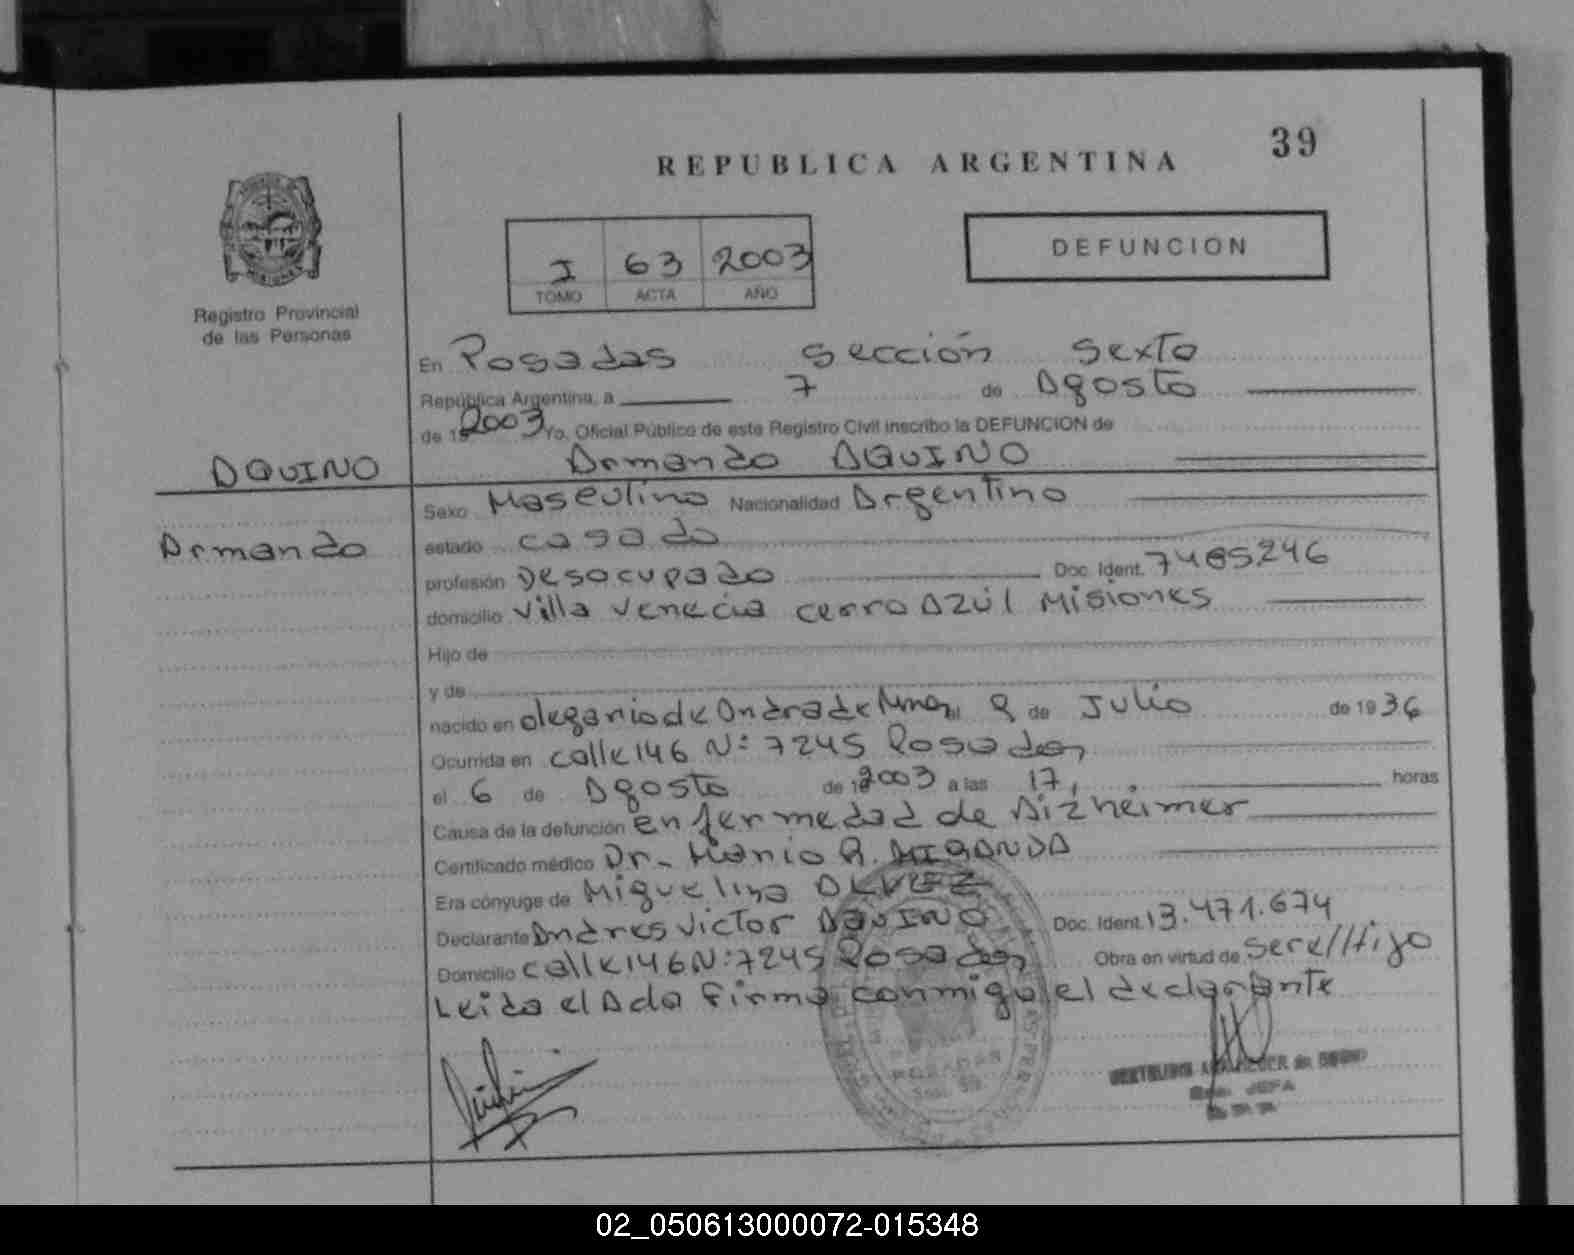 REPUBLICA ARGENTINA
39
Registro Provincial
de las Personas
I 63 2003
TOMO ACTA AÑO
DEFUNCION
En Posadas Sección Sexto
República Argentina, a 7 de Agosto
de 19 2003 Yo, Oficial Público de este Registro Civil inscribo la DEFUNCION de
AQUINO
Armando AQUINO
Armando
Sexo Masculino Nacionalidad Argentino
estado casado
profesión Desocupado Doc. Ident. 7485246
domicilio Villa Venecia cerro Azúl Misiones
Hijo de
y de
nacido en olegario de Andrade Mnes el 9 de Julio de 1936
Ocurrida en calle 146 N: 7245 Posadas
el 6 de Agosto de 2003 a las 17, horas
Causa de la defunción enfermedad de Alzheimer
Certificado médico Dr- Mario R. MIRANDA
Era cónyuge de Miguelina ALVEZ
Declarante Andres Victor AQUINO Doc. Ident. 13.471.674
Domicilio calle 146 N: 7245 Posadas Obra en virtud de ser el Hijo
Leida el Acta firma conmigo el declarante
POSADAS
JEFA
02_050613000072-015348